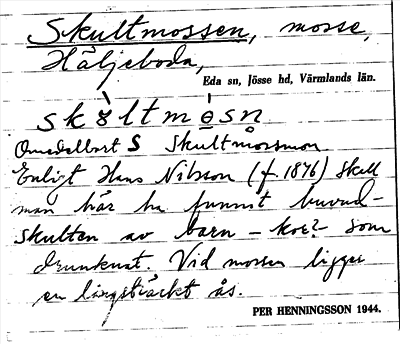 Skultmossen, mosse,
Häljeboda,
Eda sn, Jösse hd, Värmlands län.
skɤltmɵsn
Omedelbart S Skultmåssmon
Enligt Hans Nilsson (f. 1876) skall
man här ha funnit huvud-
skulten av barn – kor? som
drunknat. Vid mossen ligger
en långsträckt ås.
PER HENNINGSSON 1944.